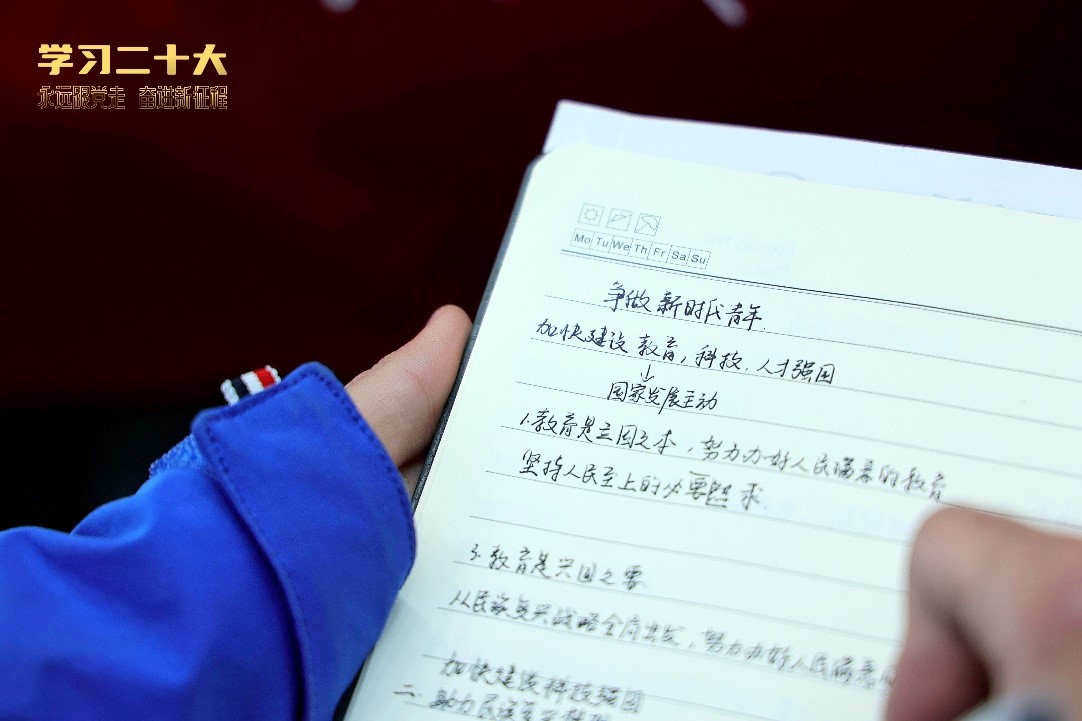 学习二十大
永远跟党走 奋进新征程
Mo Tu We Th Fr Sa Su
争做新时代青年.
加快建设教育,科技,人才强国
↓
国家发展主动
1.教育是立国之本,努力办好人民满意的教育
坚持人民至上的必要要求.
3.教育是兴国之要
从民族复兴战略全局出发,努力办好人民满意
加快建设科技强国
二.助力民族